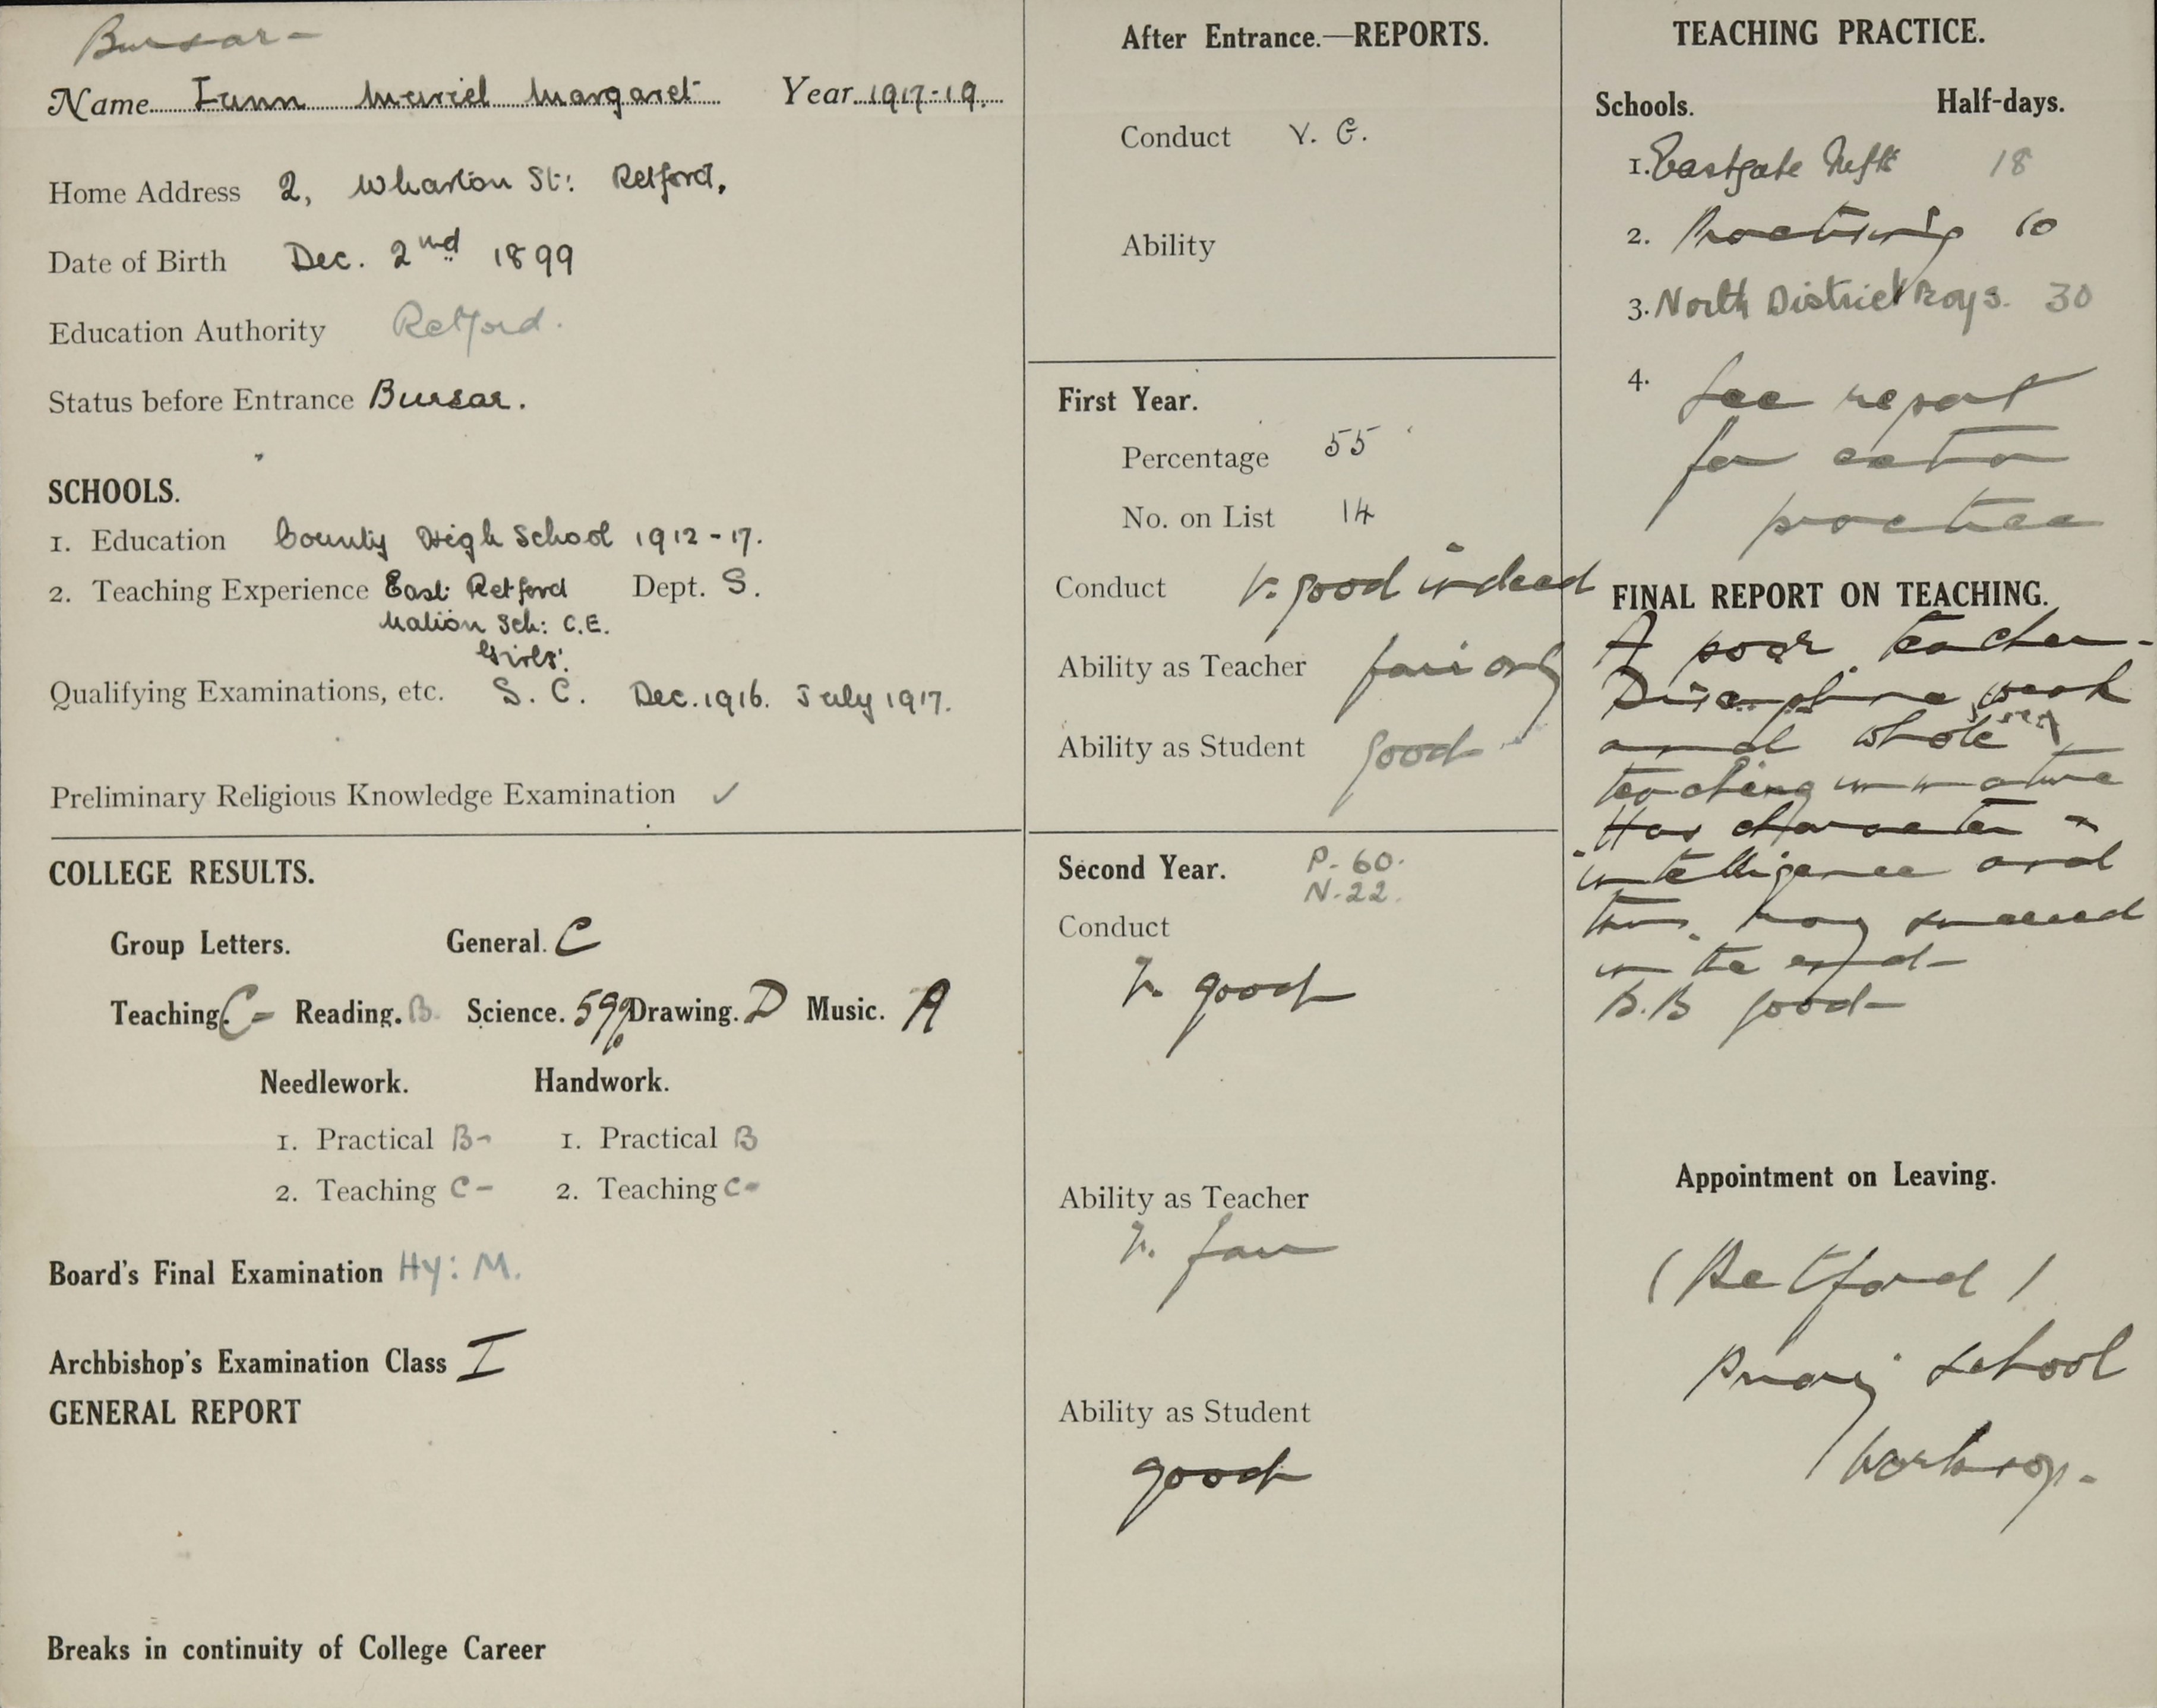 Bursar -
Name Iunn Muriel Margaret Year 1917-19.
Home Address 2, Wharton St: Retford,
Date of Birth Dec. 2nd 1899
Education Authority Retford.
Status before Entrance Bursar.
SCHOOLS.
1. Education County High School 1912-17.
2. Teaching Experience East Retford Dept. S.
Nation Sch: C.E.
Girls'.
Qualifying Examinations, etc. S. C. Dec. 1916. July 1917.
Preliminary Religious Knowledge Examination ✓
COLLEGE RESULTS.
Group Letters. General. C
Teaching. C- Reading. B Science. 59% Drawing. D Music. A
Needlework. Handwork.
1. Practical B- 1. Practical B
2. Teaching C- 2. Teaching C-
Board's Final Examination Hy: M.
Archbishop's Examination Class I
GENERAL REPORT
Breaks in continuity of College Career
After Entrance.—REPORTS.
Conduct V. G.
Ability
First Year.
Percentage 55
No. on List 14
Conduct v. good indeed
Ability as Teacher fair only
Ability as Student good
Second Year. P- 60.
N-22.
Conduct
v. good
Ability as Teacher
v. fair
Ability as Student
good
TEACHING PRACTICE.
Schools. Half-days.
1. Eastgate 18
2. Practising 10
3. North District Boys. 30
4. See report
for extra
practice
FINAL REPORT ON TEACHING.
A poor teacher-
Discipline weak
and whole
teaching immature
Has character &
intelligence and
thus may succeed
in the end-
B.B good-
Appointment on Leaving.
(Retford)
Priory School
Worksop.